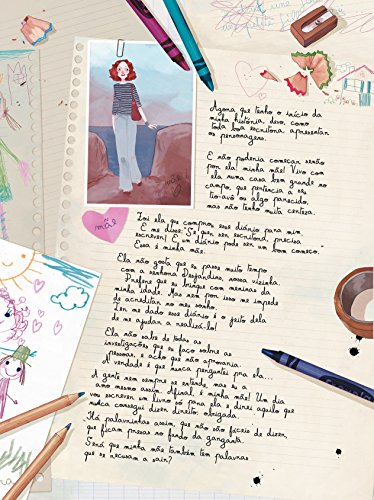 Agora que tenho o início da
minha história, devo, como
toda boa escritora, apresentar
os personagens.
E não poderia começar senão
por ela: minha mãe! Vivo com
ela numa casa bem grande no
campo, que pertencia a seu
tio-avô ou algo parecido,
mas não tenho muita certeza.
mãe
mãe
Foi ela que comprou esse diário para mim.
E me disse: "Se quer ser escritora, precisa
escrever! E um diário pode ser um bom começo.
Essa é minha mãe.
Ela não gosta que eu passe muito tempo
com a senhora Desjardins, nossa vizinha.
Prefere que eu brinque com meninas da
minha idade. Mas nem por isso me impede
de acreditar no meu sonho.
Ter me dado esse diário é o jeito dela
de me ajudar a realizá-lo!
Ela não sabe de todas as
investigações que eu faço sobre as
pessoas, e acho que não aprovaria.
Na verdade é que nunca perguntei pra ela...
A gente nem sempre se entende, mas eu a
amo mesmo assim, afinal, é minha mãe! Um dia
vou escrever um livro só para ela e direi aquilo que
nunca consegui dizer direito: obrigada.
Há palavrinhas assim, que não são fáceis de dizer,
que ficam presas no fundo da garganta.
Será que minha mãe também tem palavras
que se recusam a sair?